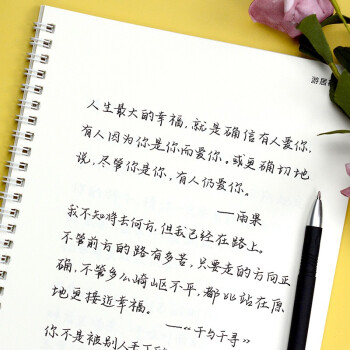 游居
人生最大的幸福,就是确信有人爱你,
有人因为你是你而爱你。或更确切地
说,尽管你是你,有人仍爱你。
——雨果
我不知将去何方,但我已经在路上。
不管前方的路有多苦,只要走的方向正
确,不管多么崎岖不平,都比站在原
地更接近幸福。
——“千与千寻”
你不是被别人